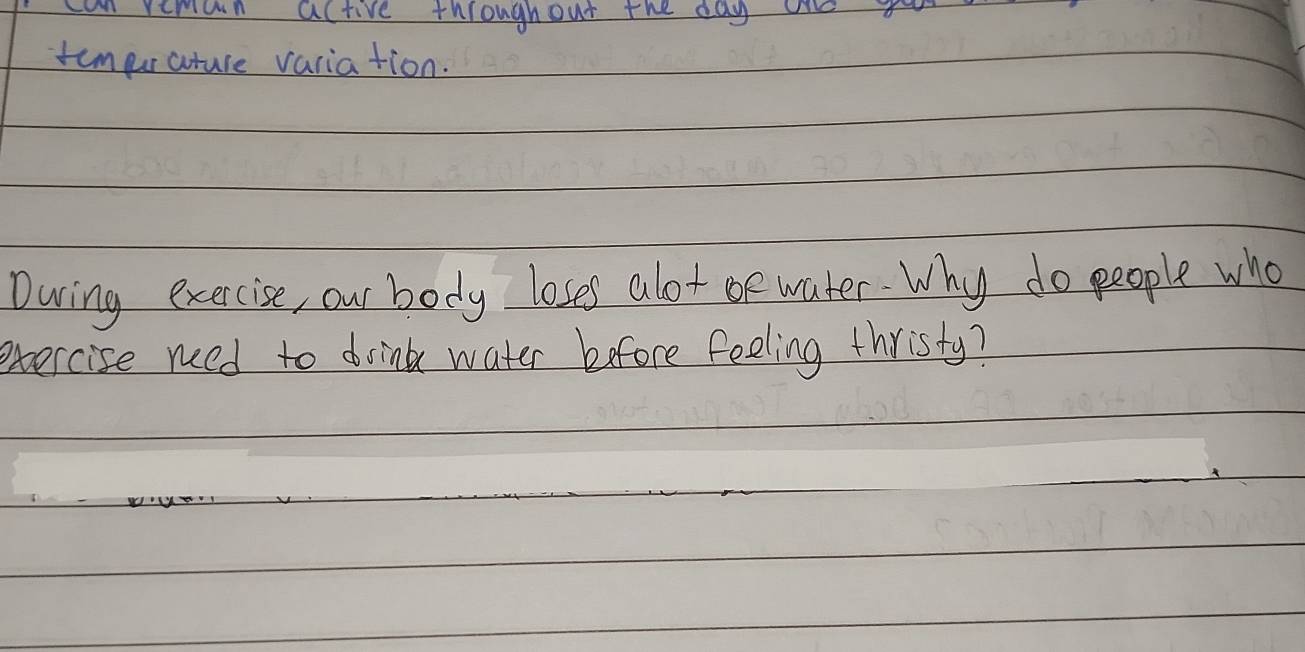 can remain active throughout the day
temperature variation.
During exercise, our body loses alot of water. Why do people who
exercise need to drink water before feeling thristy?